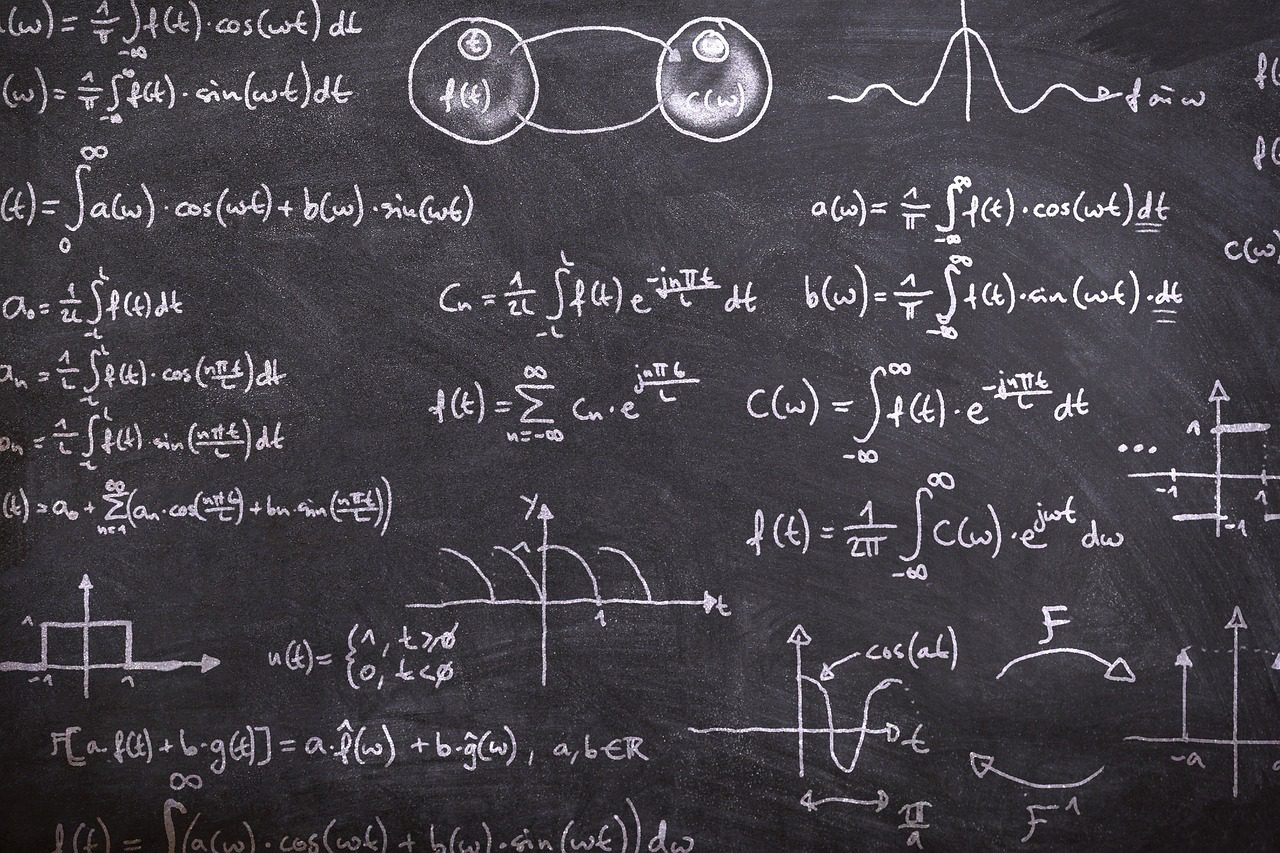 (ω) = 1/π ∫_{-∞} f(t) · cos(ωt) dt
(ω) = 1/π ∫_{-∞}^{∞} f(t) · sin(ωt) dt
t
f(t)
c(ω)
f ω
f(
f(
(t) = ∫_0^∞ a(ω) · cos(ωt) + b(ω) · sin(ωt)
a(ω) = 1/π ∫_{-∞}^{∞} f(t) · cos(ωt) dt
c(ω)
a₀ = 1/2L ∫_{-L}^{L} f(t) dt
Cn = 1/2L ∫_{-L}^{L} f(t) e^{-jnπt/L} dt
b(ω) = 1/π ∫_{-∞}^{∞} f(t) · sin(ωt) · dt
an = 1/L ∫_{-L}^{L} f(t) · cos(nπt/L) dt
f(t) = ∑_{n=-∞}^{∞} Cn · e^{jnπt/L}
C(ω) = ∫_{-∞}^{∞} f(t) · e^{-jnπt/L} dt
n = 1/L ∫_{-L}^{L} f(t) · sin(nπt/L) dt
...
1
-1
1
-1
(t) = a₀ + ∑_{n=1}^{∞} (an · cos(nπt/L) + bn · sin(nπt/L))
f(t) = 1/2π ∫_{-∞}^{∞} C(ω) · e^{jωt} dω
y
1
t
1
1
-1
1
u(t) = { 1, t ≥ 0
0, t < 0
cos(at)
t
π/a
F
F⁻¹
-a
F[a·f(t) + b·g(t)] = a·f̂(ω) + b·ĝ(ω), a,b ∈ ℝ
f(t) = ∫^∞ (a(ω) · cos(ωt) + b(ω) · sin(ωt)) dω